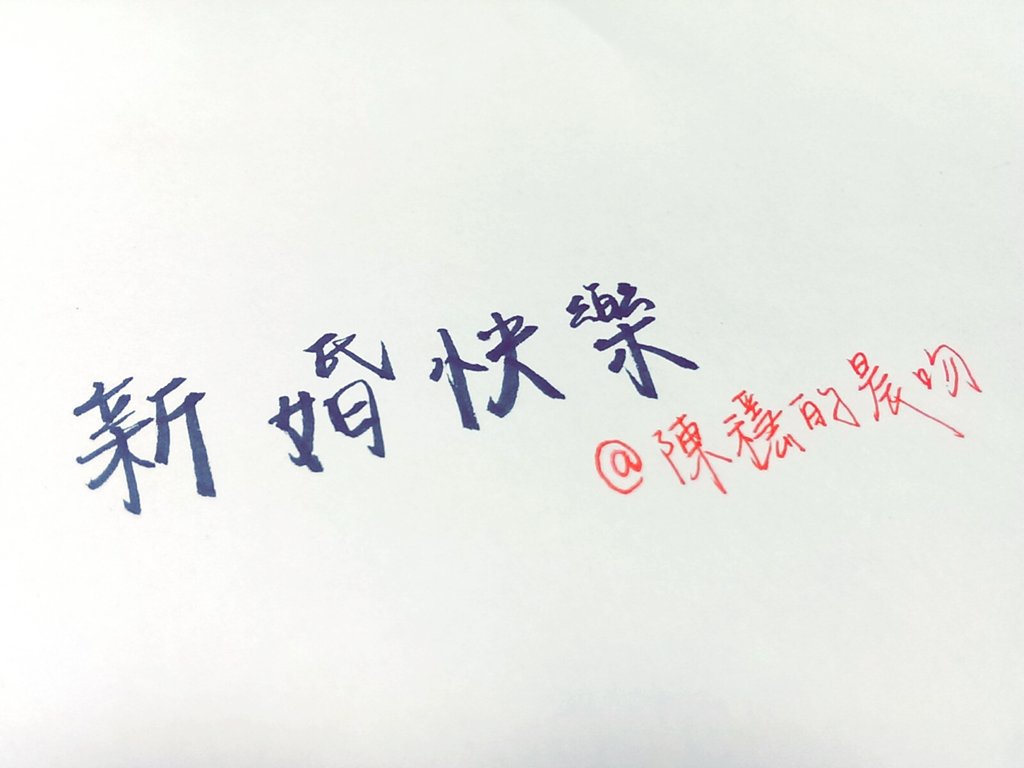 新婚快樂
@陳禧的晨吻